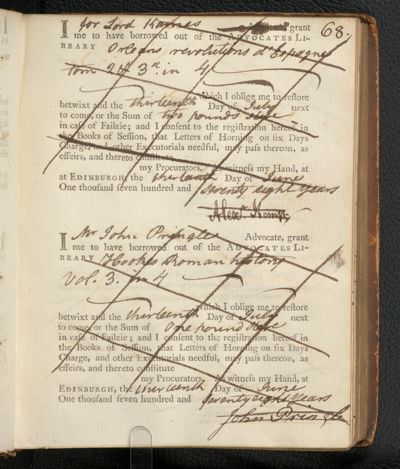 68.
I for Lord Kames Advocate, grant
me to have borrowed out of the ADVOCATES LI-
BRARY Orleans revolutions d'Espagne
tom 2d 3d in 4
which I oblige me to restore
betwixt and the thirteenth Day of July next
to come, or the Sum of two pounds
in case of Failzie; and I consent to the registration hereof in
the Books of Session, that Letters of Horning on six Days
Charge, and other Executorials needful, may pass thereon, as
effeirs, and thereto constitute
my Procurators. As witness my Hand, at
at EDINBURGH the thirteenth Day of June
One thousand seven hundred and seventy eight years
Alexr. Kemp
I Mr John Pringle Advocate, grant
me to have borrowed out of the ADVOCATES LI-
BRARY Hookes Roman history
vol. 3. in 4
which I oblige me to restore
betwixt and the thirteenth Day of July next
to come, or the Sum of One pound
in case of Failzie; and I consent to the registration hereof in
the Books of Session, that Letters of Horning on six Days
Charge, and other Executorials needful, may pass thereon, as
effeirs, and thereto constitute
my Procurators. As witness my Hand, at
EDINBURGH, the thirteenth Day of June
One thousand seven hundred and seventy eight years
John Pringle